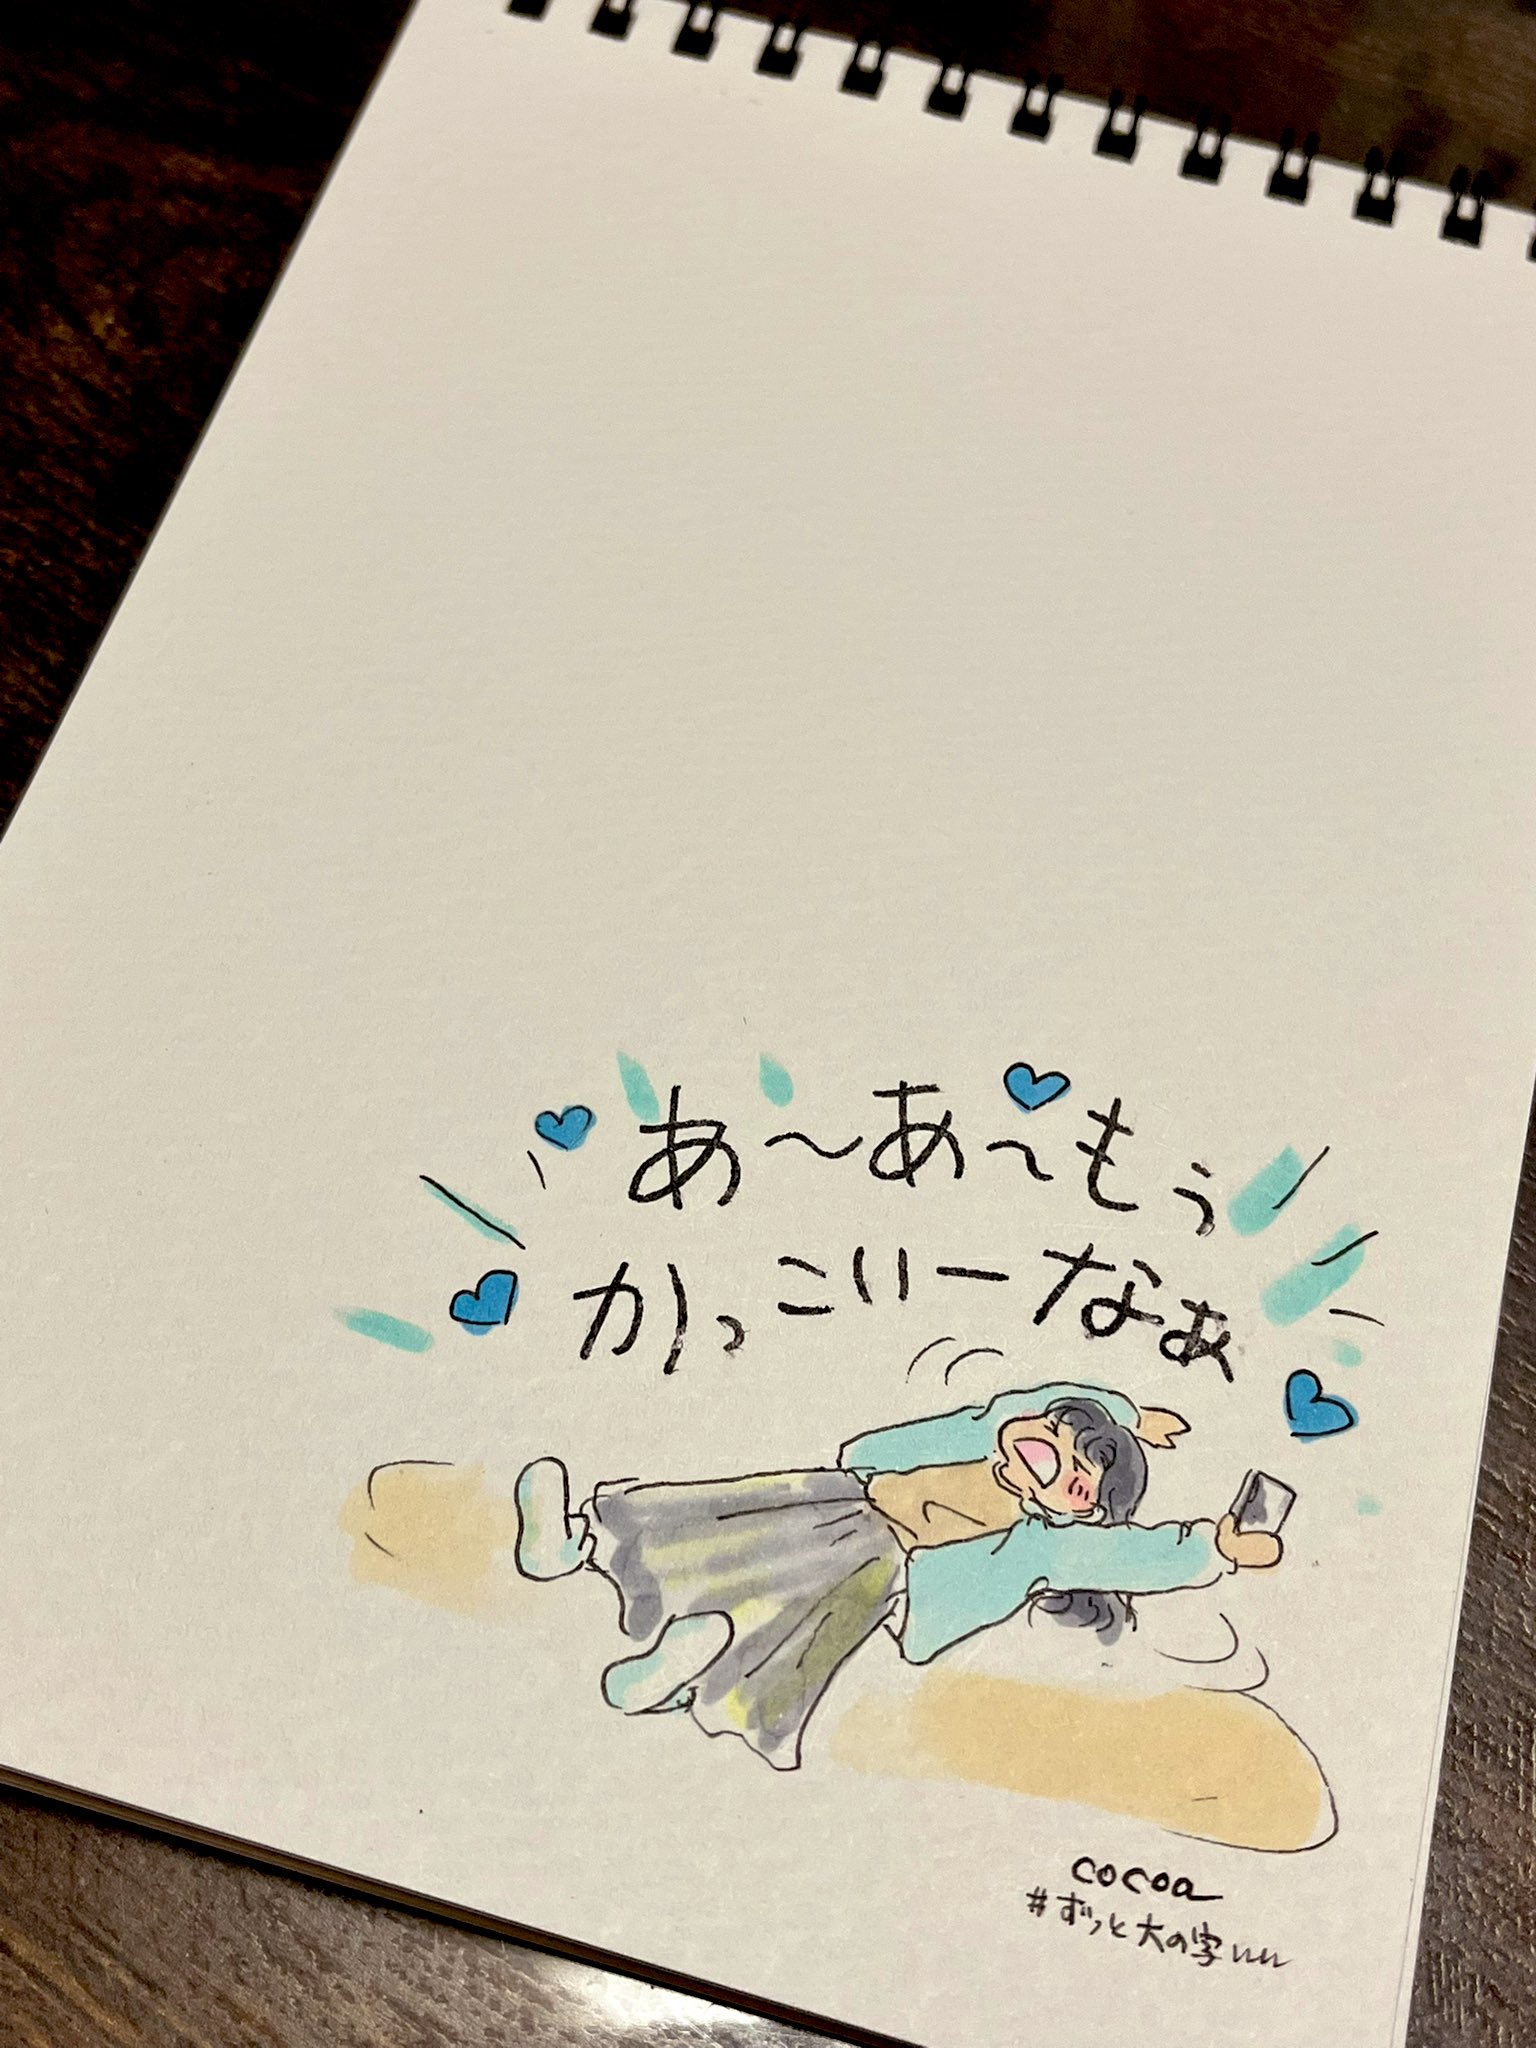 あ〜あ〜もぅ
かっこいーなぁ
cocoa
#ずっと大の字